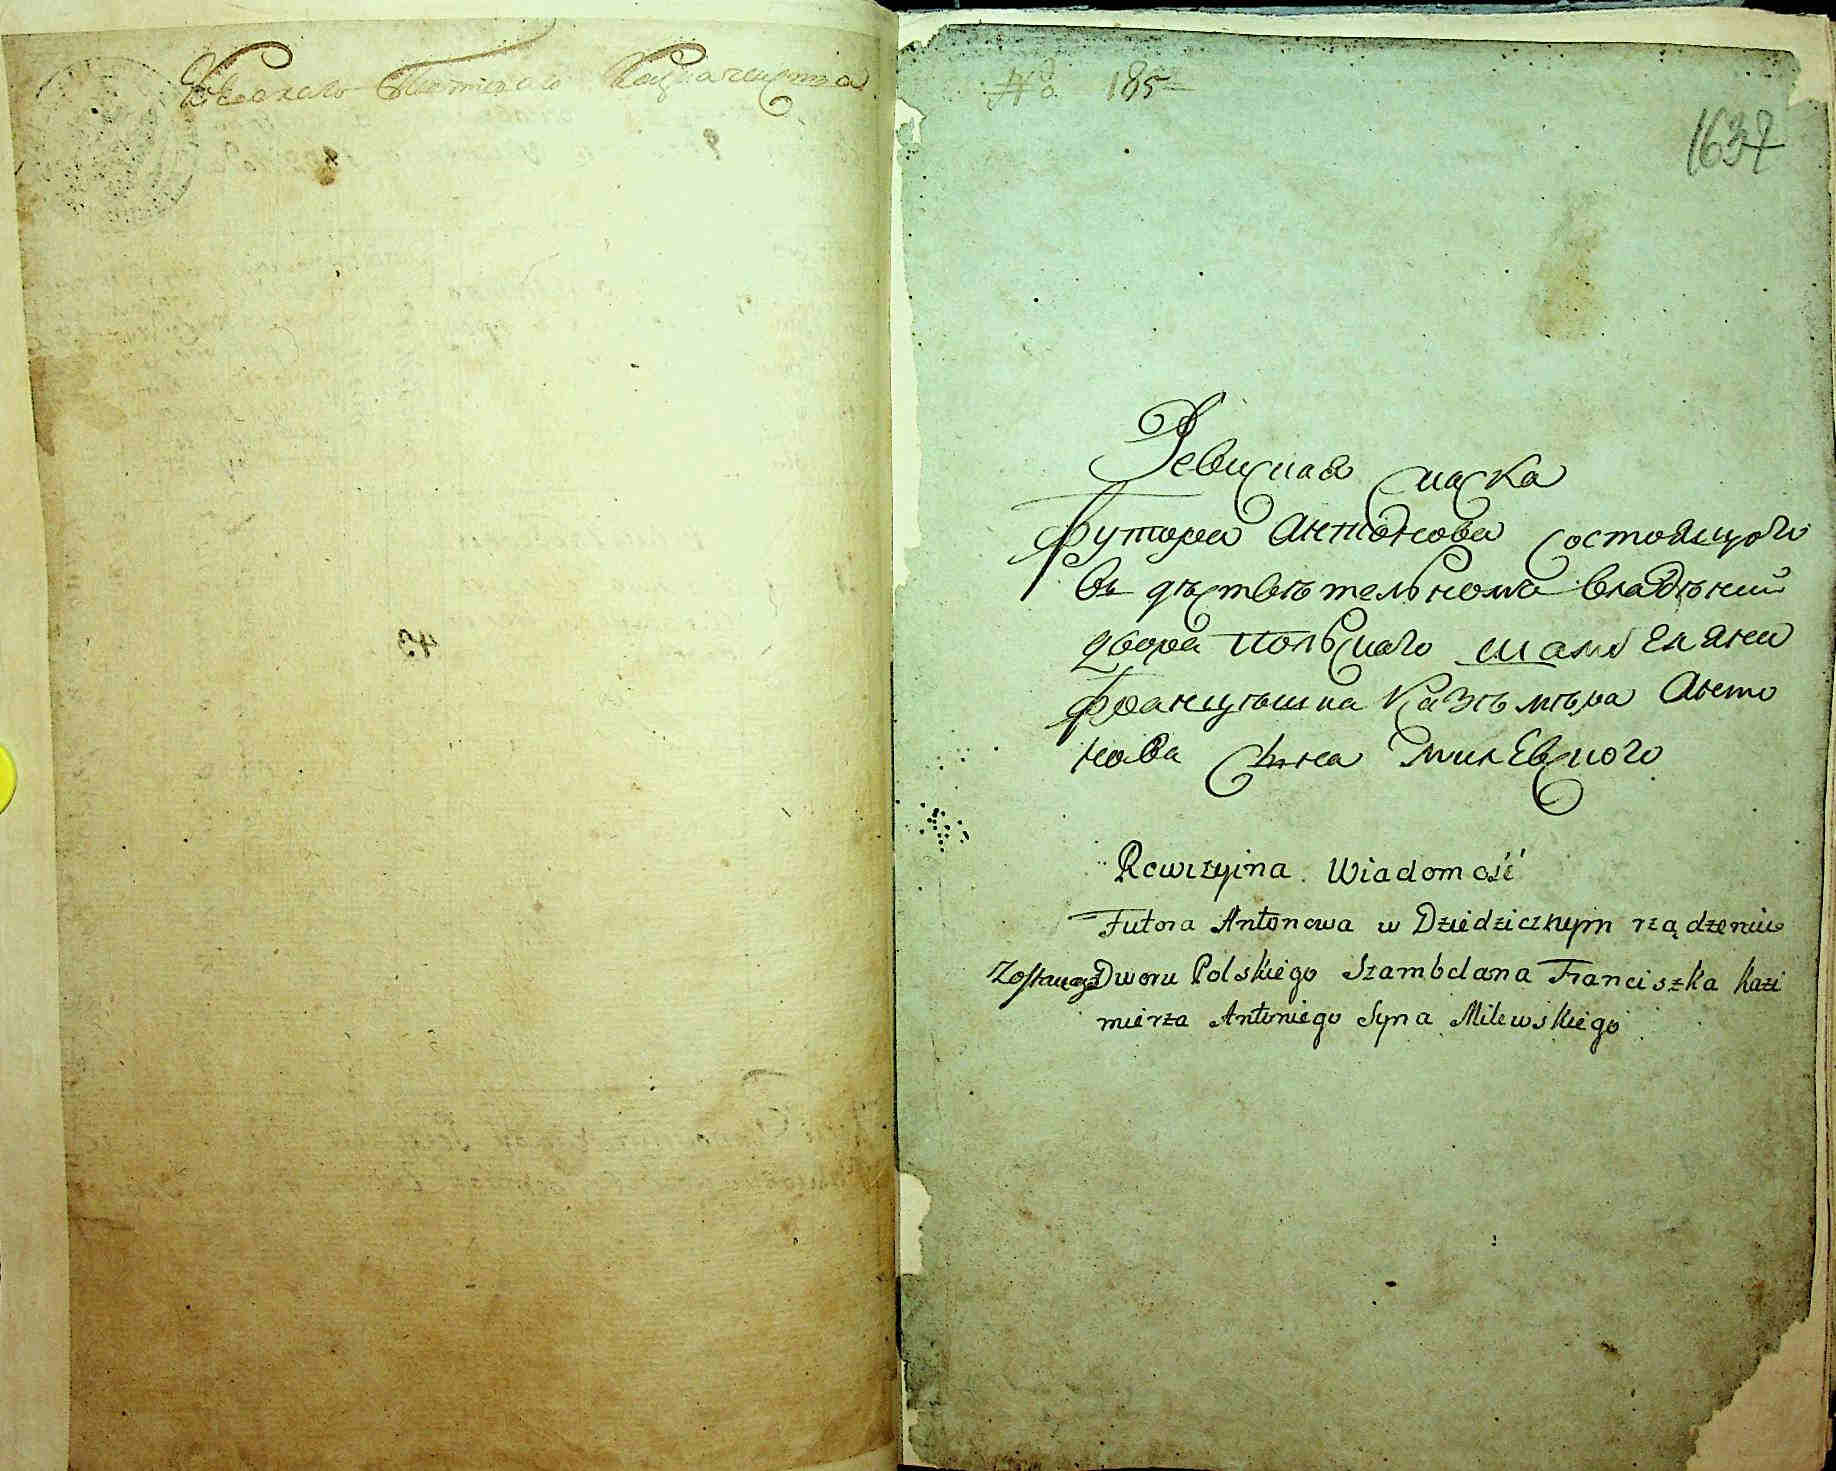 Казначейства
43
№ 185
1637
Ревиская скаска
Футора Антонова состоящого
въ дѣствѣтельномъ владѣнии
двора польскаго шамбеляна
Францѣшка Казѣмѣра Анто
нова сына Милевского
Rewizyina Wiadomość
Futora Antonowa w Dziedzicznym rządzeniu
Dworu Polskiego Szambelana Franciszka Kazi
mierza Antoniego Syna Milewskiego